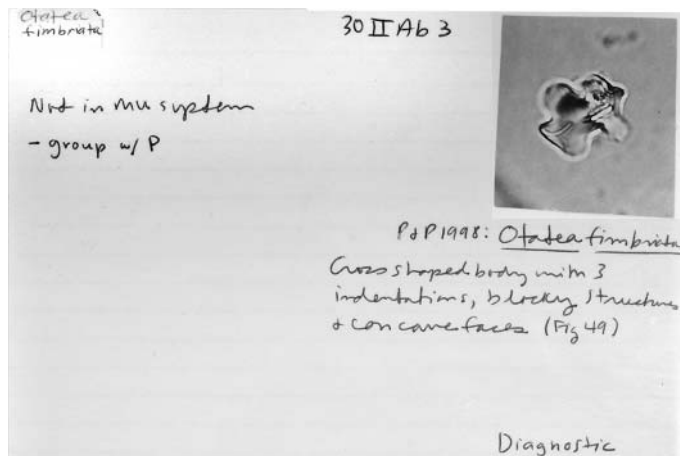 Otatea
fimbriata
30 II Ab 3
Not in MU system
- group w/ P
P & P 1998: Otatea fimbriata
Cross shaped body with 3
indentations, blocky structures
& concave faces (Fig 49)
Diagnostic